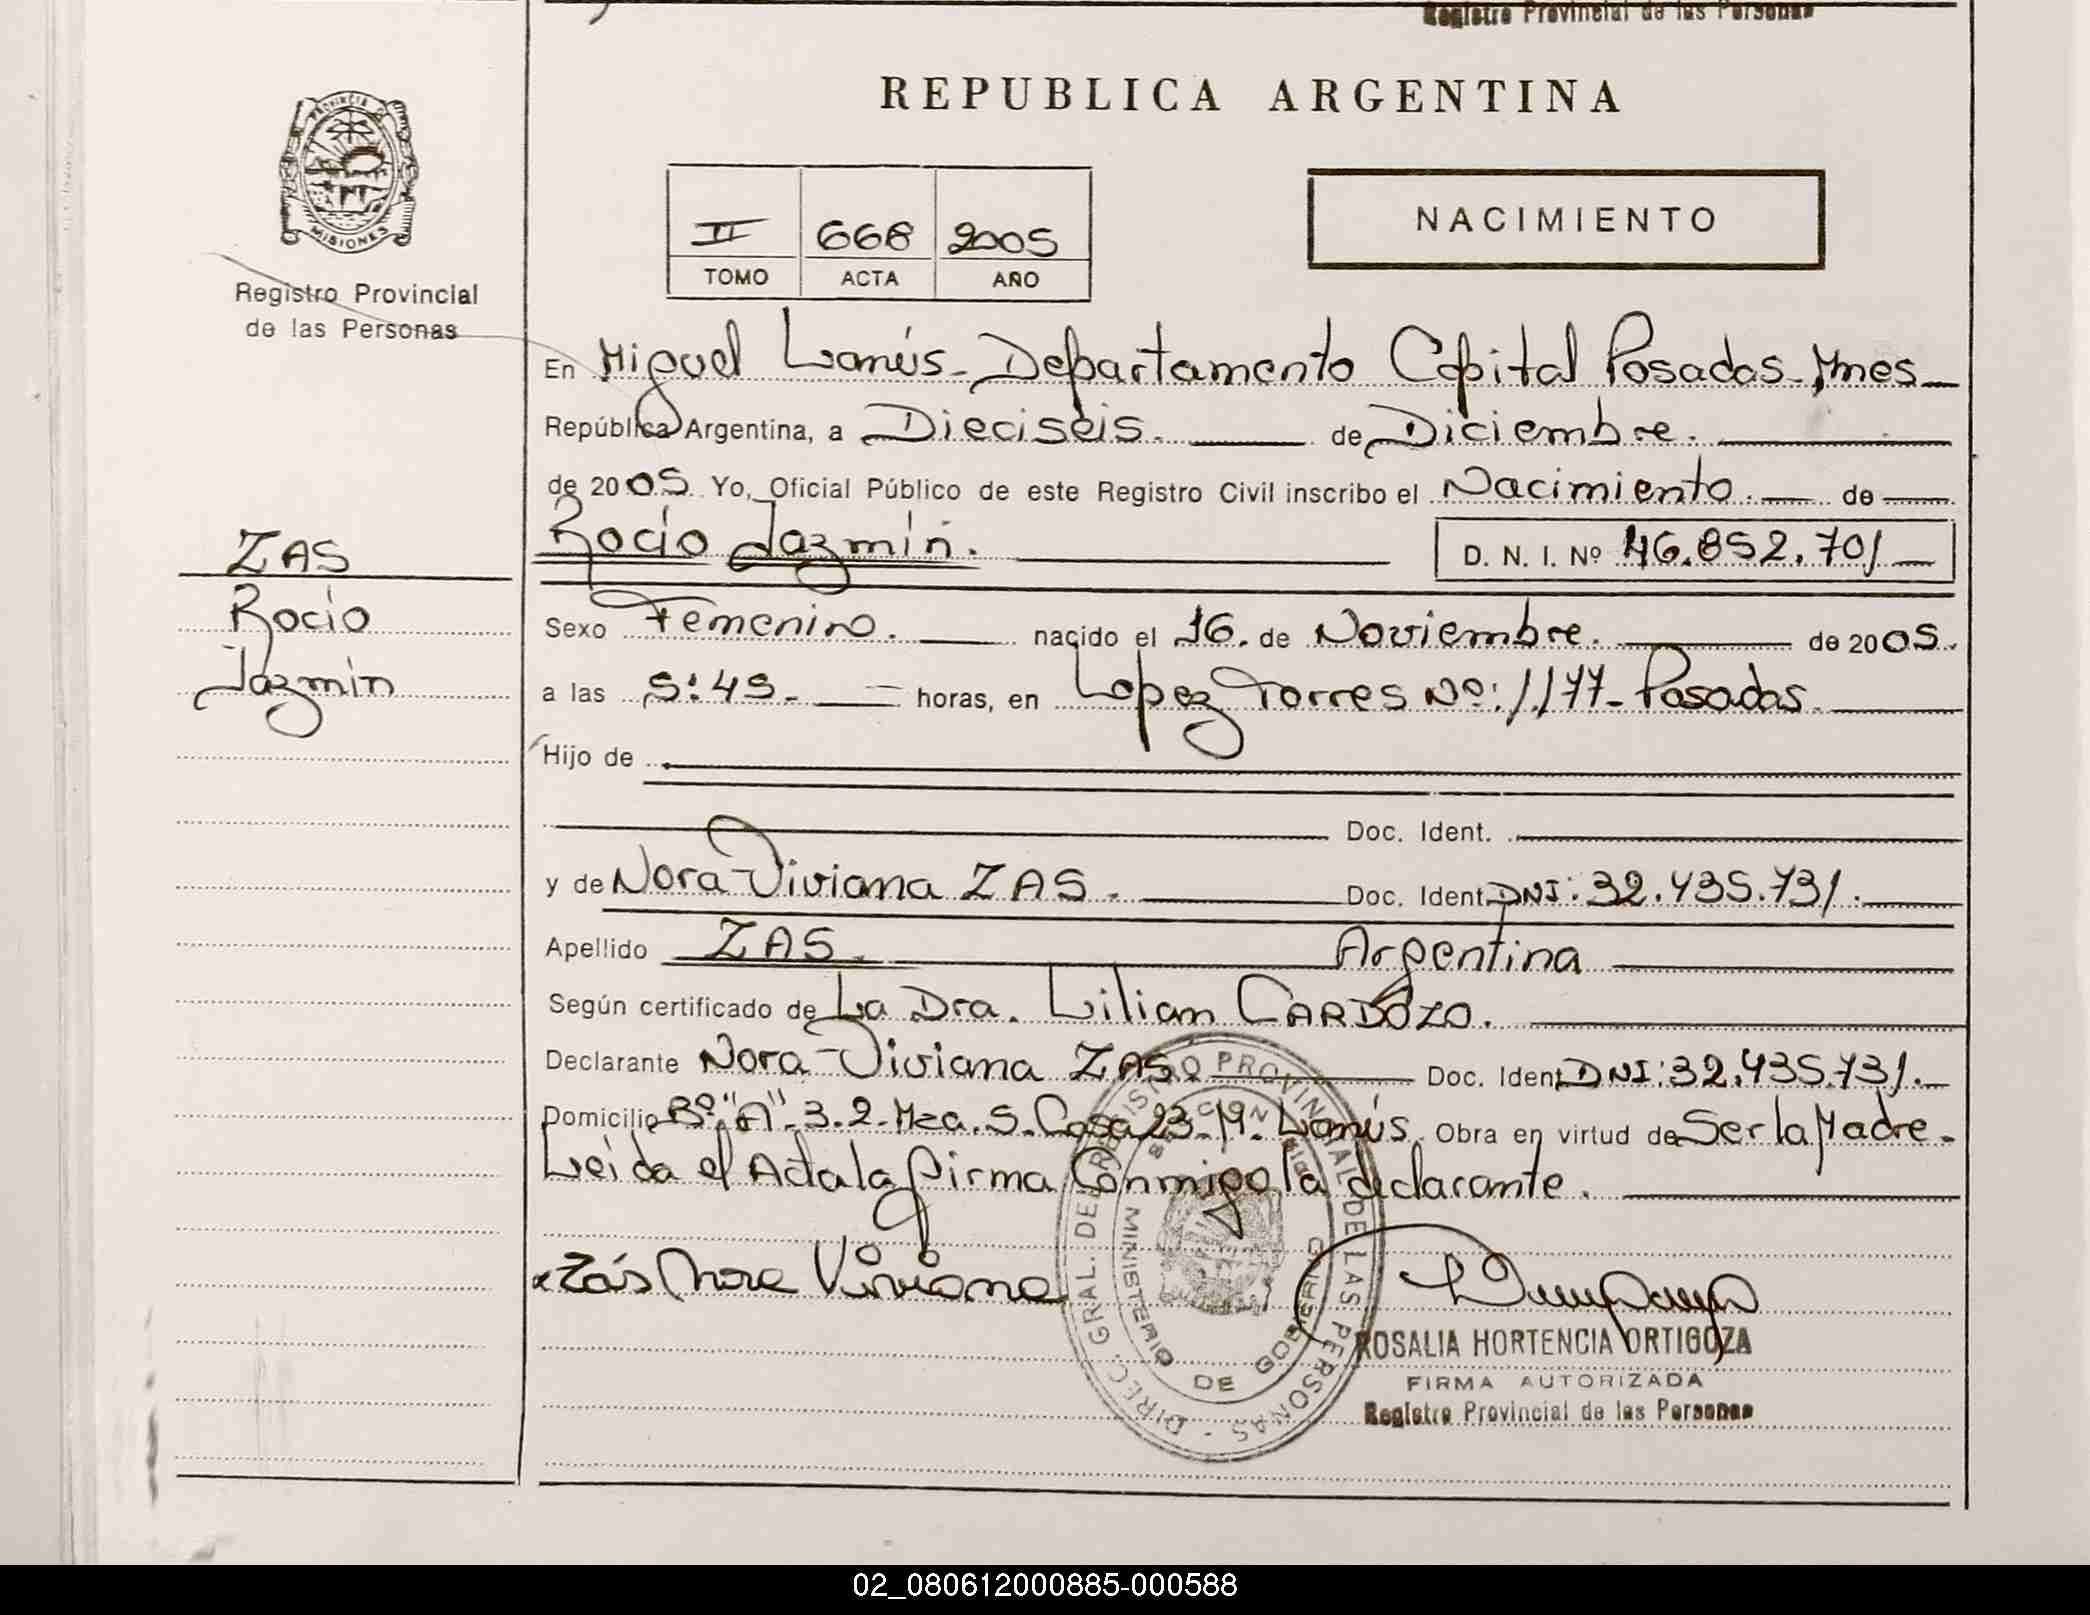 Registro Provincial de las Personas
REPUBLICA ARGENTINA
PROVINCIA DE
MISIONES
Registro Provincial
de las Personas
II 668 2005
TOMO ACTA AÑO
NACIMIENTO
En Miguel Lanús - Departamento Capital Posadas - Mnes
República Argentina, a Dieciséis. de Diciembre.
de 2005. Yo, Oficial Público de este Registro Civil inscribo el Nacimiento. de
ZAS
Rocio
Jazmin
Rocio Jazmin.
D. N. I. Nº 46.852.701
Sexo Femenino. nacido el 16. de Noviembre. de 2005.
a las 5:45. horas, en Lopez Torres Nº: 1177 - Posadas.
Hijo de
Doc. Ident.
y de Nora Viviana ZAS. Doc. Ident. DNI: 32.435.731.
Apellido ZAS. Argentina
Según certificado de La Dra. Lilian CARDOZO.
Declarante Nora Viviana ZAS. Doc. Ident. DNI: 32.435.731.
Domicilio Bº "A" - 3.2 - Mza. 5. Casa 23 - M. Lanús. Obra en virtud de Ser la Madre -
Leida el Acta la firma Conmigo la declarante.
Zás Nora Viviana
DIREC. GRAL. DEL REGISTRO PROVINCIAL DE LAS PERSONAS -
MINISTERIO DE GOBIERNO
ROSALIA HORTENCIA ORTIGOZA
FIRMA AUTORIZADA
Registro Provincial de las Personas
02_080612000885-000588